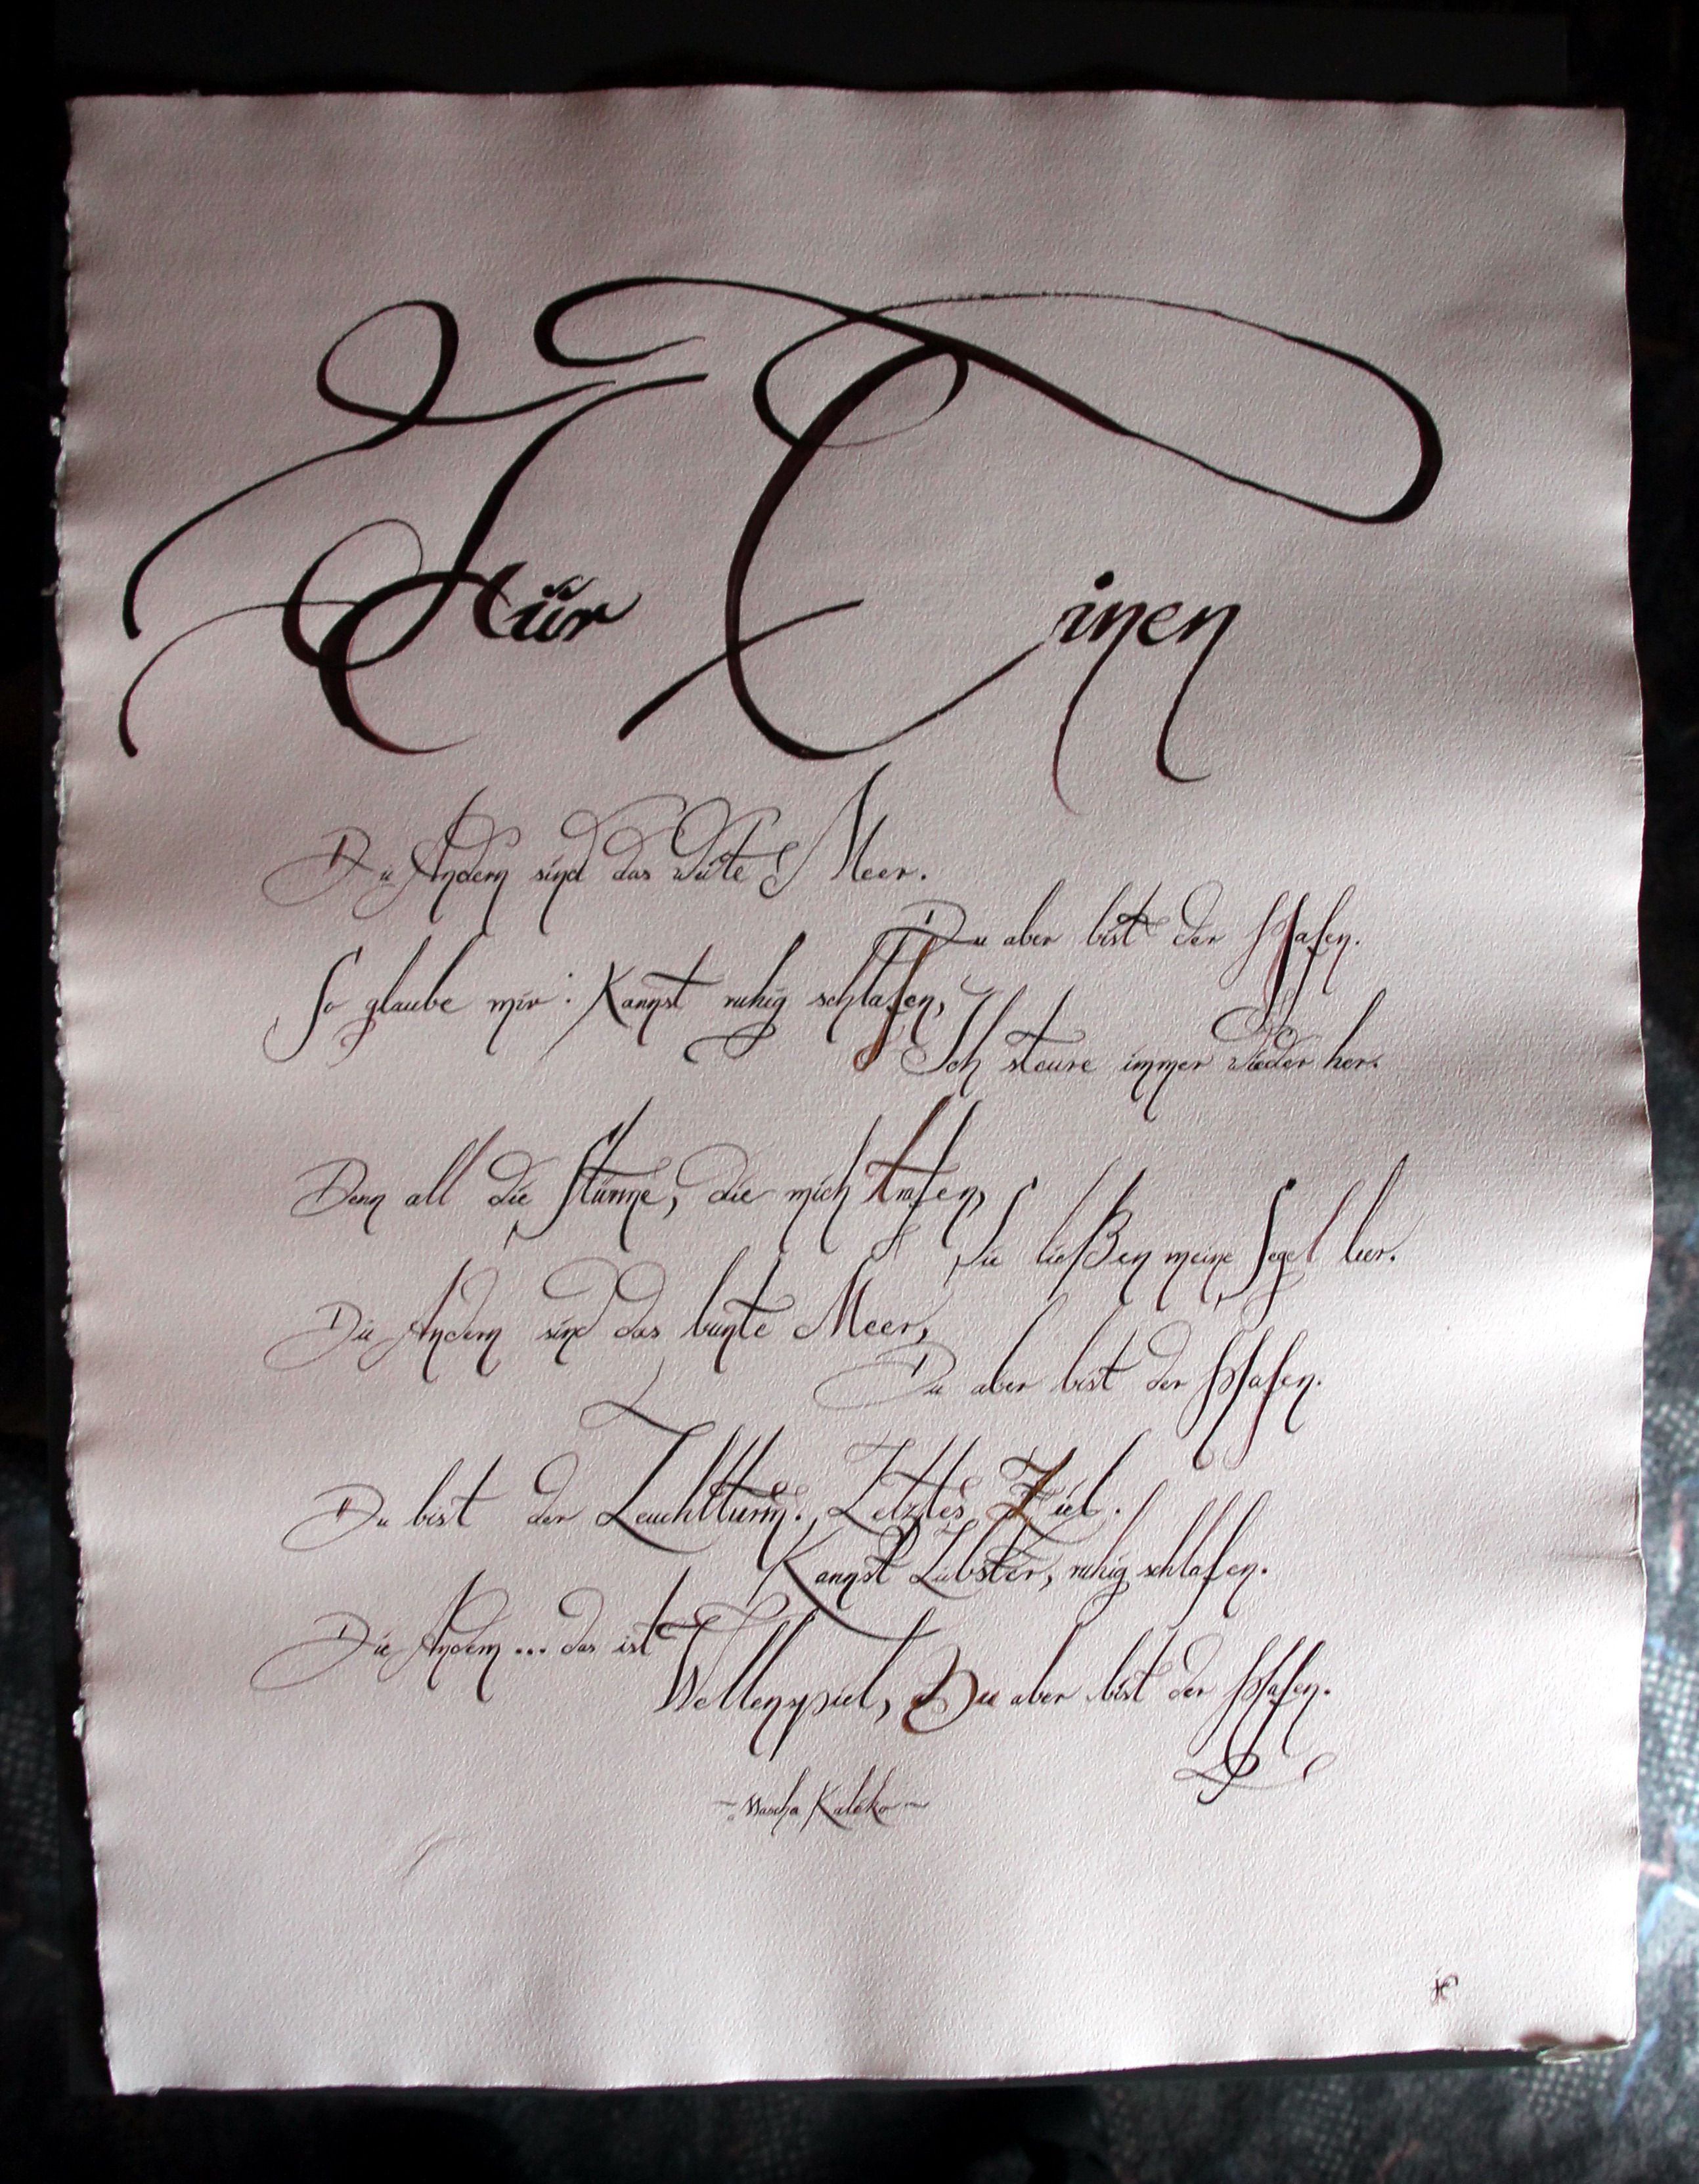 Für Einen
Die Andern sind das weite Meer.
Du aber bist der Hafen.
So glaube mir: Kannst ruhig schlafen,
Ich steure immer wieder her.
Denn all die Stürme, die mich trafen,
Sie ließen meine Segel leer.
Die Andern sind das bunte Meer,
Du aber bist der Hafen.
Du bist der Leuchtturm. Letztes Ziel.
Kannst Liebster, ruhig schlafen.
Die Andern... das ist
Wellenspiel, Du aber bist der Hafen.
~Mascha Kaléko~